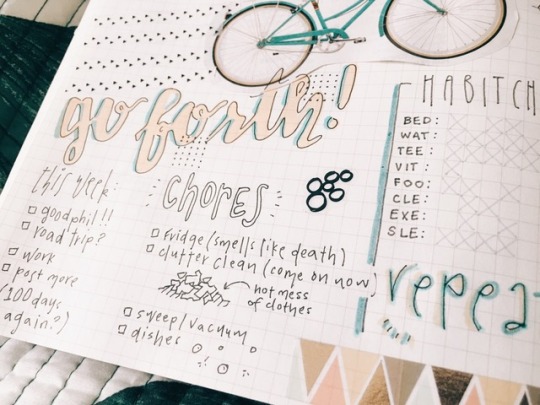 go forth!
this week:
□ goodphil!!
□ road trip?
□ work
□ post more
(100 days
again?)
CHORES
□ fridge (smells like death)
□ clutter clean (come on now)
hot mess
of clothes
□ sweep/vacuum
□ dishes
HABITCH
BED:
WAT:
TEE:
VIT:
FOO:
CLE:
EXE:
SLE:
repea